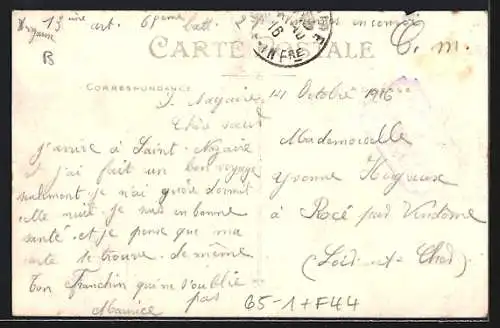 13ème art. 6ème batt.
C. m.
B
CARTE POSTALE
CORRESPONDANCE
S. Nazaire 14 Octobre 1916
Chère sœur
J'arrive à Saint-Nazaire
et j'ai fait un bon voyage
seulement je n'ai guère dormit
cette nuit je suis en bonne
santé et je pense que ma
carte te trouve de même
Ton Franchin qui ne s'oublie
pas
Maurice
Mademoiselle
Yvonne
à Rocé par Vendome
(Loir-et-Cher)
65-1+F44